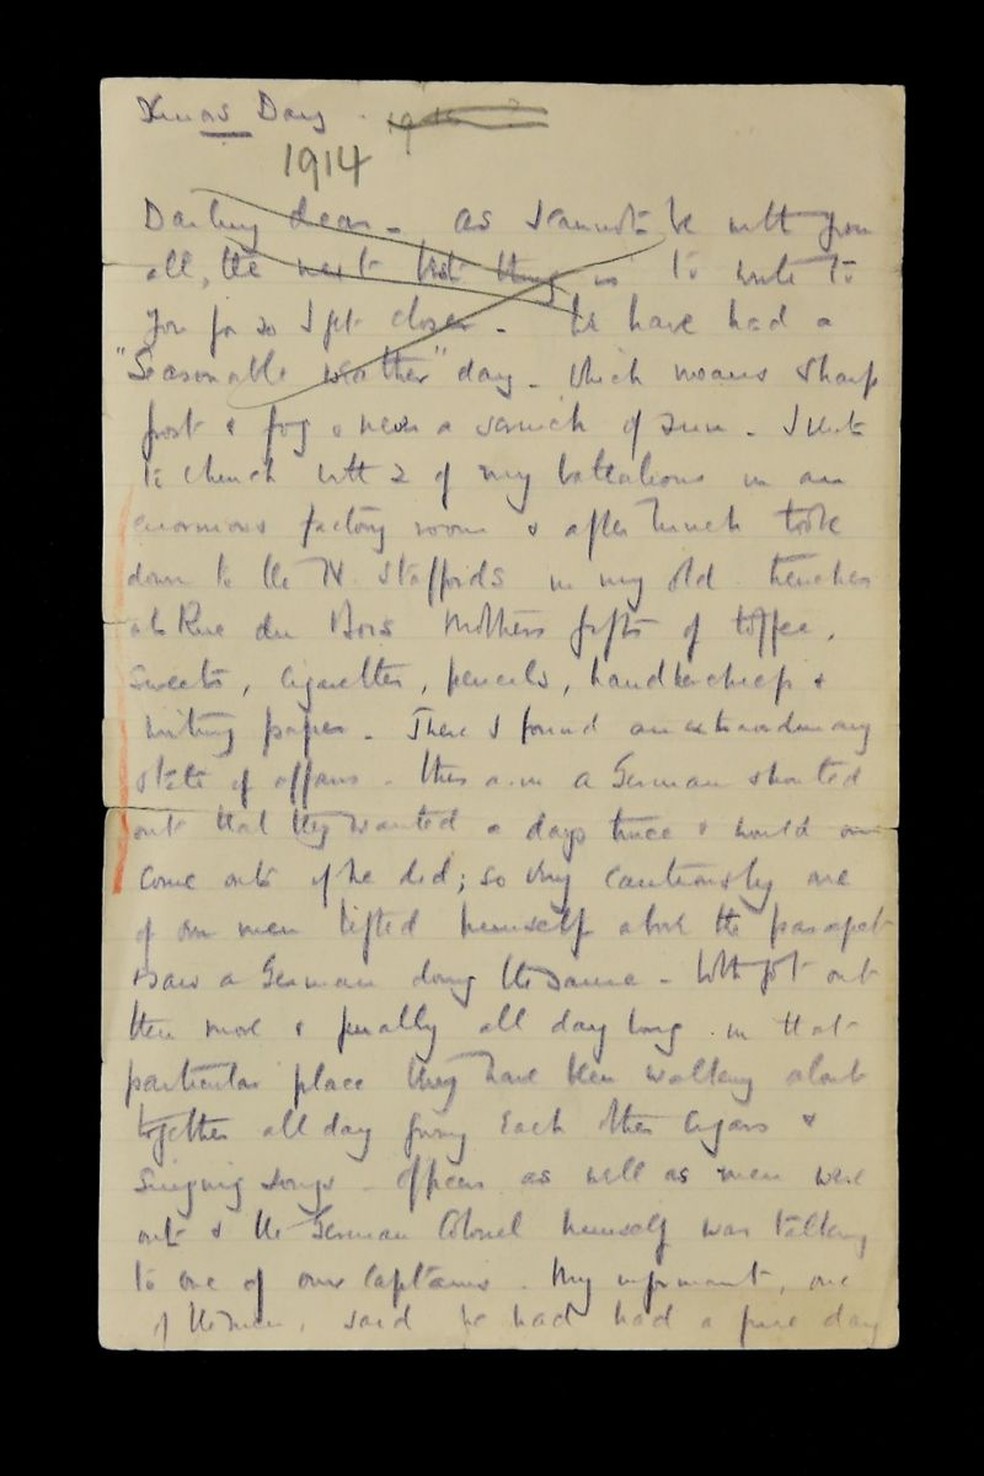 Xmas Day. 19
1914
Darling dear - as I cannot be with you
all, the next best thing is to write to
you for so I get closer - We have had a
"Seasonable weather" day - which means sharp
frost & fog & never a scrap of sun - I went
to church with 2 of my battalions in an
enormous factory room & after lunch took
down to the N. Staffords in my old trenches
at Rue du Bois Mothers gifts of toffee,
sweets, cigarettes, pencils, handkerchiefs &
writing paper - There I found an extraordinary
state of affairs - this a.m a German shouted
out that they wanted a days truce & would one
come out if he did; so very cautiously one
of our men lifted himself above the parapet
& saw a German doing the same - Both got out
then more & finally all day long in that
particular place they have been walking about
together all day giving each other cigars &
singing songs - Officers as well as men were
out & the German Colonel himself was talking
to one of our Captains. My informant, one
of the men, said he had had a fine day